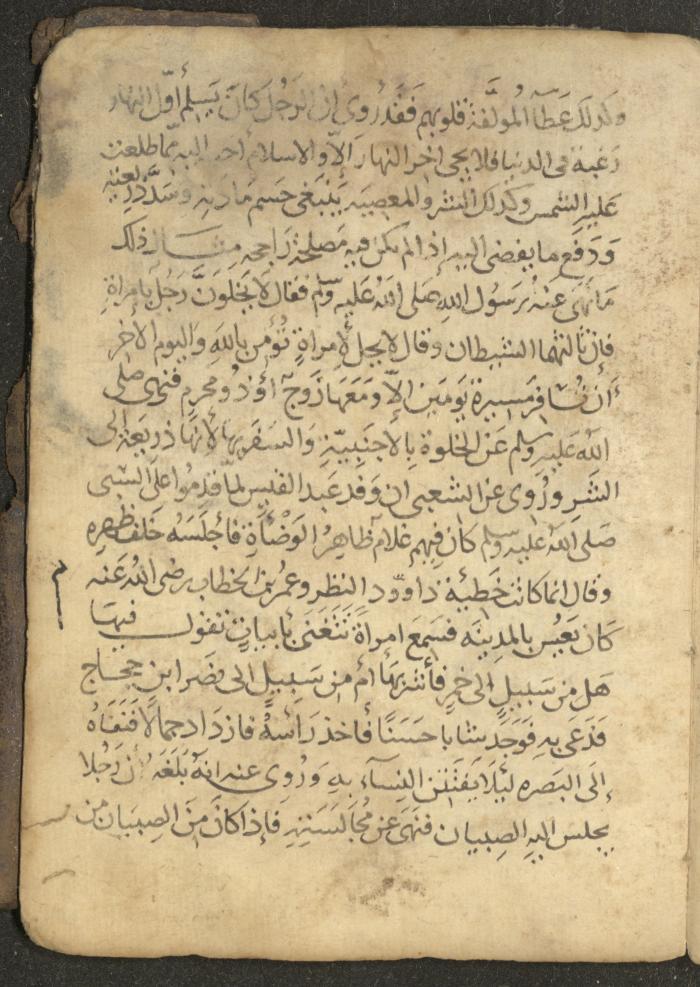 وكذلك عَطآء المُولَّفَة قلوبهم فَقَد رُوى ان الرَجُل كانَ يَسلم أوّل النهار
رَغبة فى الدنيا فلا يجى اخر النهار الاّ والاسلام أحب اليه ممّا طلعت
عليه الشمس وكذلك الشر والمعصيه يَنبَغى حَسم مادته وسَدّ ذريعته
وَدَفع ما يفضى اليه اذا لم يكن فيه مَصلحة رَاجحه مثال ذلك
مَا نهَى عنهُ رَسُول الله صَلى اللهُ عَليه وسلم فقال لا يَخلوَنَّ رَجُل بامراةٍ
فان ثالثهما الشيطان وقال لا يحل لامراةٍ تُؤمن بالله وَاليوم الاخر
أن تُسَافر مَسيرة يَومَين الاّ وَمَعَهَا زَوج أو ذُو محرم فنهى صلى
الله عَليه وسلم عَن الخلوة بِالاجنَبيّةِ وَالسَفَر بها لانهَا ذريَعة الى
الشَرِ ورُوى عن الشعبى ان وَفد عَبد القيس لمّا قدموا على النبى
صَلى اللهُ عليه وسلم كان فيهم غلام ظَاهِرُ الوَضَآةِ فأجلَسَهُ خَلف ظهره
وقال انما كانت خَطيئة داوود النظر وعمر بن الخطاب رضى الله عَنه
م
كان يَعُس بالمدينَه فسَمعَ امراةً تَتَغَنى بأبياتٍ تقول فيهَا
هَل مِن سَبيلٍ الى خمرٍ فأشرَبهَا أم من سَبيلٍ الى نصَر ابن حجّاج
فَدَعَى بهِ فَوَجَد شابا حَسَنًا فأخذ رَاسَهُ فازدَاد جمالا فَنَفَاهُ
إلَى البَصره ليَلا يَفتَتن النِسآء بهِ وَرُوى عنه انهُ بَلَغَهُ أن رَجُلا
يجلسَ اليهِ الصِبيان فنَهَى عن مُجَالسَتِهِ فَإذا كانَ مِنَ الصِبيَان من